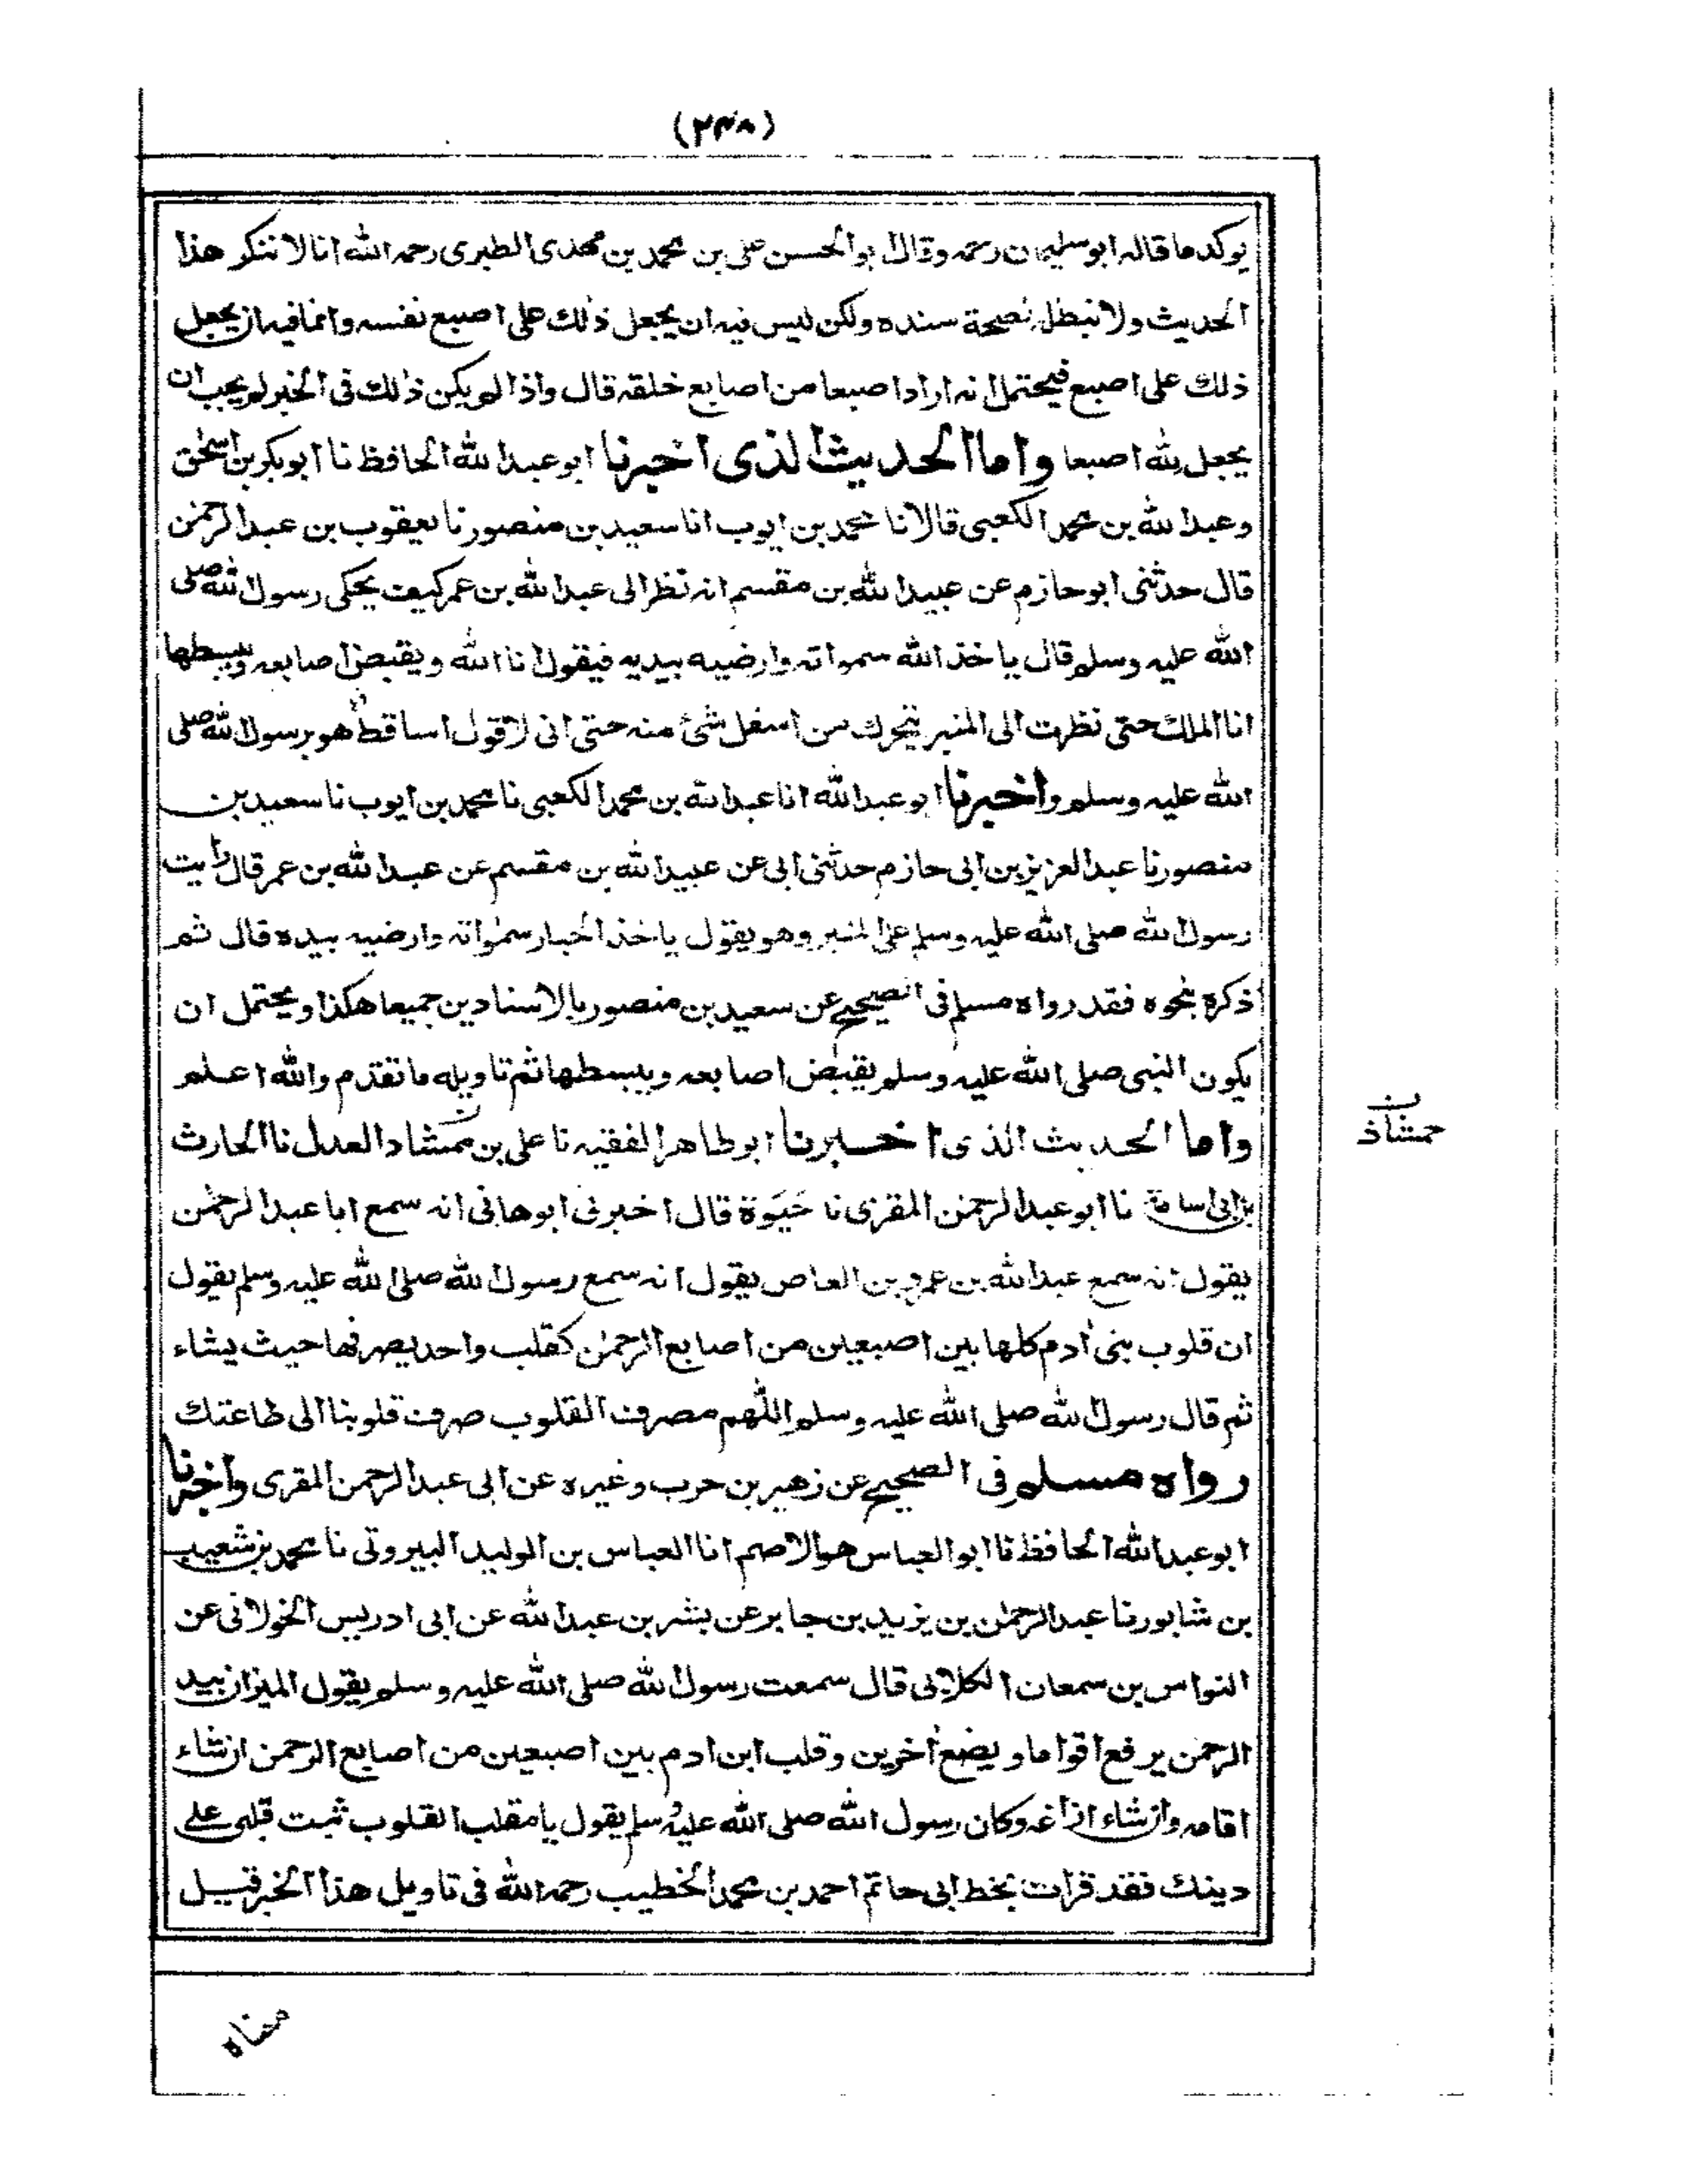 (۲۴۸)
يوكد ما قاله ابو سليمان رحمه وقال ابو الحسن على بن محمد بن مهدى الطبرى رحمه الله انا لا ننكر هذا
الحديث ولا نبطله لصحة سنده ولكن ليس فيه ان يجعل ذلك على اصبع نفسه وانما فيه ان يجعل
ذلك على اصبع فيحتمل انه اراد اصبعا من اصابع خلقه قال واذا لم يكن ذلك فى الخبر لم يجب ان
يجعل لله اصبعا واما الحديث الذى اخبرنا ابو عبد الله الحافظ نا ابو بكر بن اسحٰق
وعبد الله بن محمد الكعبى قالا نا محمد بن ايوب انا سعيد بن منصور نا يعقوب بن عبد الرحمٰن
قال حدثنى ابو حازم عن عبيد الله بن مقسم انه نظر الى عبد الله بن عمر كيف يحكى رسول الله صلى
الله عليه وسلم قال ياخذ الله سمواته وارضيه بيديه فيقول انا الله ويقبض اصابعه ويبسطها
انا الملك حتى نظرت الى المنبر يتحرك من اسفل شئ منه حتى انى لاقول اساقط هو برسول الله صلى
الله عليه وسلم واخبرنا ابو عبد الله انا عبد الله بن محمد الكعبى نا محمد بن ايوب نا سعيد بن
منصور نا عبد العزيز بن ابى حازم حدثنى ابى عن عبيد الله بن مقسم عن عبد الله بن عمر قال رأيت
رسول الله صلى الله عليه وسلم على المنبر وهو يقول ياخذ الجبار سمٰواته وارضيه بيده قال ثم
ذكره بنحوه فقد رواه مسلم فى الصحيح عن سعيد بن منصور بالاسنادين جميعا هكذا ويحتمل ان
يكون النبى صلى الله عليه وسلم يقبض اصابعه ويبسطها ثم تاويله ما تقدم والله اعلم
واما الحديث الذى اخبرنا ابو طاهر الفقيه نا على بن ممشاد العدل نا الحارث
بن ابى اسامة نا ابو عبد الرحمٰن المقرى نا حَيْوَة قال اخبرنى ابو هانى انه سمع ابا عبد الرحمٰن
يقول انه سمع عبد الله بن عمرو بن العاص يقول انه سمع رسول الله صلى الله عليه وسلم يقول
ان قلوب بنى اٰدم كلها بين اصبعين من اصابع الرحمٰن كقلب واحد يصرفها حيث يشاء
ثم قال رسول الله صلى الله عليه وسلم اللّٰهم مصرف القلوب صرف قلوبنا الى طاعتك
رواه مسلم فى الصحيح عن زهير بن حرب وغيره عن ابى عبد الرحمن المقرى واخبرنا
ابو عبد الله الحافظ نا ابو العباس هو الاصم انا العباس بن الوليد البيروتى نا محمد بن شعيب
بن شابور نا عبد الرحمٰن بن يزيد بن جابر عن بشر بن عبد الله عن ابى ادريس الخولانى عن
النواس بن سمعان الكلابى قال سمعت رسول الله صلى الله عليه وسلم يقول الميزان بيد
الرحمن يرفع اقواما ويضع اٰخرين وقلب ابن ادم بين اصبعين من اصابع الرحمن ان شاء
اقامه وان شاء ازاغه وكان رسول الله صلى الله عليه وسلم يقول يا مقلب القلوب ثبت قلبى على
دينك فقد قرات بخط ابى حاتم احمد بن محمد الخطيب رحمه الله فى تاويل هذا الخبر قيل
ن
حمشاذ
معناه